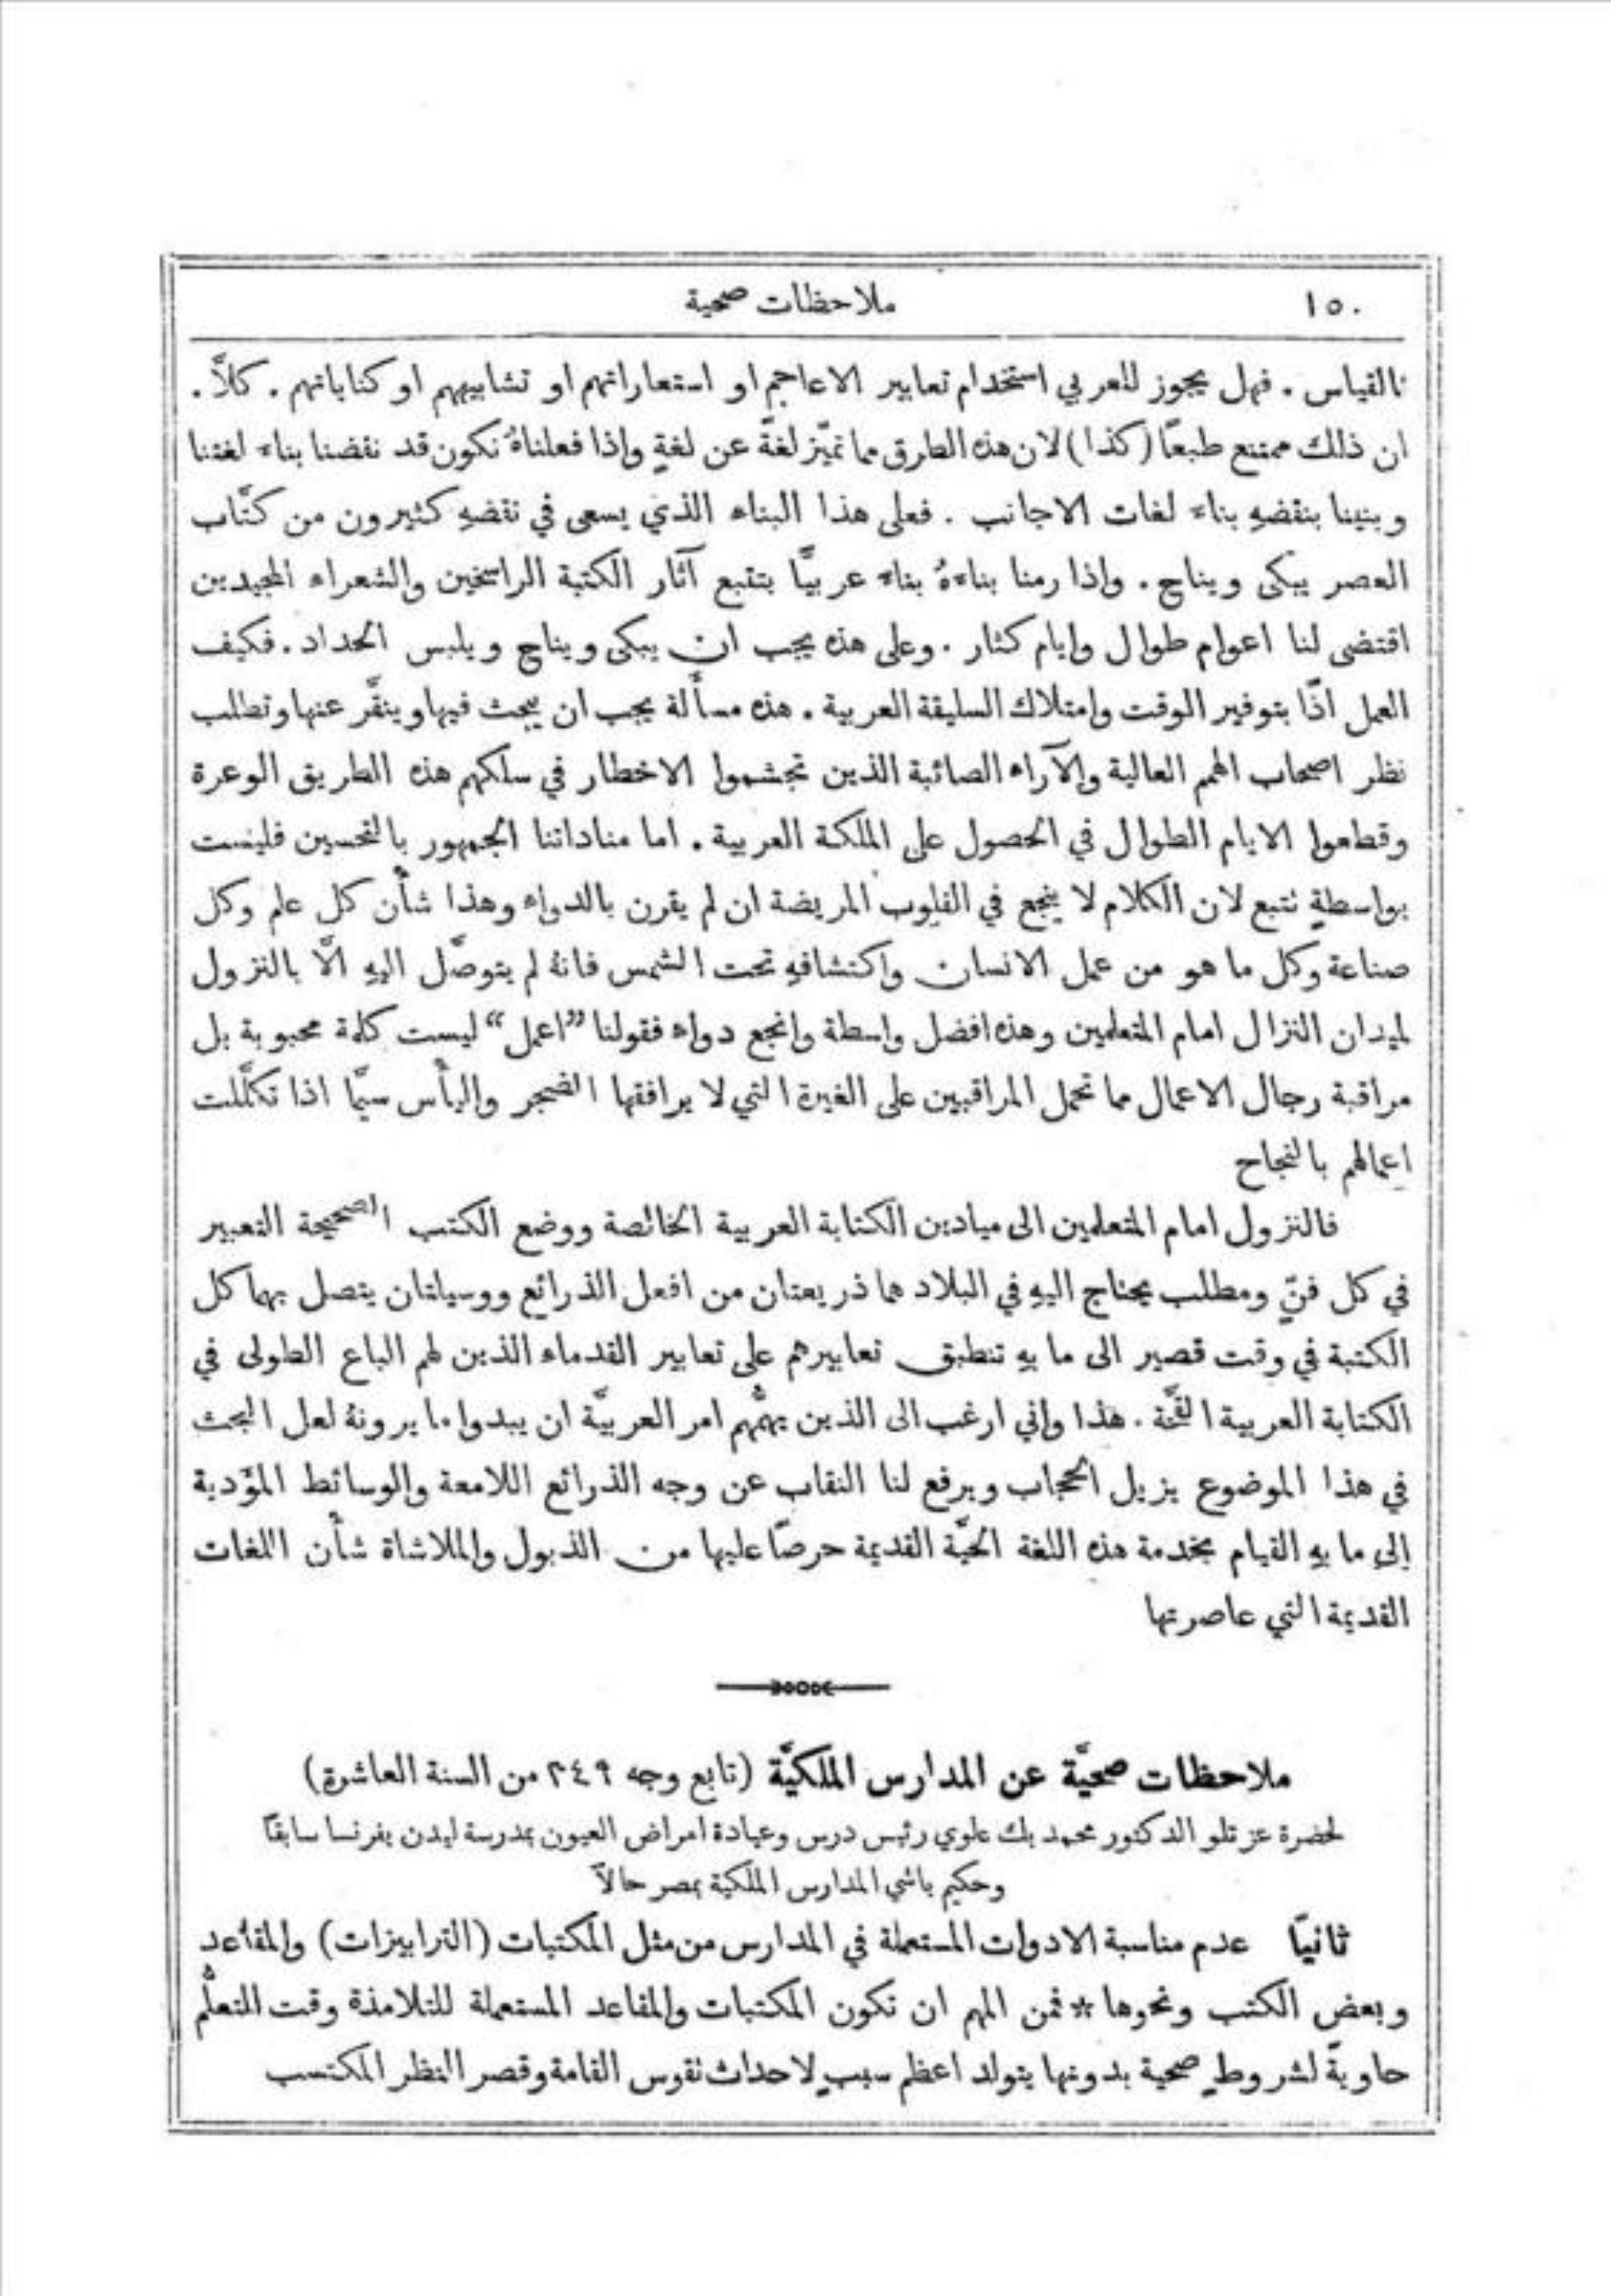 ١٥٠ ملاحظات صحية
بالقياس . فهل يجوز للعربي استخدام تعابير الاعاجم او استعاراتهم او تشابيههم او كناياتهم . كلاَّ .
ان ذلك ممتنع طبعًا (كذا) لان هذه الطرق مما تميّز لغةً عن لغةٍ واذا فعلناهُ نكون قد نقضنا بناء لغتنا
وبنينا بنقضهِ بناء لغات الاجانب . فعلى هذا البناء الذي يسعى في نقضهِ كثيرون من كتَّاب
العصر يبكى ويناح . واذا رمنا بناءهُ بناء عربيًّا بتتبع آثار الكتبة الراسخين والشعراء المجيدين
اقتضى لنا اعوام طوال وايام كثار . وعلى هذه يجب ان يبكى ويناح ويلبس الحداد . فكيف
العمل اذًا بتوفير الوقت وامتلاك السليقة العربية . هذه مسألة يجب ان يبحث فيها وينقَّر عنها وتطلب
نظر اصحاب الهمم العالية والآراء الصائبة الذين تجشموا الاخطار في سلكهم هذه الطريق الوعرة
وقطعوا الايام الطوال في الحصول على الملكة العربية . اما مناداتنا الجمهور بالتحسين فليست
بواسطةٍ تتبع لان الكلام لا ينجع في القلوب المريضة ان لم يقرن بالدواء وهذا شأن كل علم وكل
صناعة وكل ما هو من عمل الانسان واكتشافهِ تحت الشمس فانهُ لم يتوصَّل اليهِ الَّا بالنزول
لميدان النزال امام المتعلمين وهذه افضل واسطة وانجع دواء فقولنا ”اعمل“ ليست كلمة محبوبة بل
مراقبة رجال الاعمال مما تحمل المراقبين على الغيرة التي لا يرافقها الضجر واليأس سيَّما اذا تكلَّلت
اعمالهم بالنجاح
فالنزول امام المتعلمين الى ميادين الكتابة العربية الخالصة ووضع الكتب الصحيحة التعبير
في كل فنّ ومطلب يحتاج اليهِ في البلاد هما ذريعتان من افعل الذرائع ووسيلتان يتصل بهما كل
الكتبة في وقت قصير الى ما بهِ تنطبق تعابيرهم على تعابير القدماء الذين لهم الباع الطولى في
الكتابة العربية القحَّة . هذا واني ارغب الى الذين يهمُّهم امر العربيَّة ان يبدوا ما يرونهُ لعل البحث
في هذا الموضوع يزيل الحجاب ويرفع لنا النقاب عن وجه الذرائع اللامعة والوسائط المؤدية
الى ما بهِ القيام بخدمة هذه اللغة الحيَّة القديمة حرصًا عليها من الذبول والملاشاة شأن اللغات
القديمة التي عاصرتها
ملاحظات صحيَّة عن المدارس الملكيَّة (تابع وجه ٢٤٩ من السنة العاشرة)
لحضرة عزتلو الدكتور محمد بك علوي رئيس درس وعيادة امراض العيون بمدرسة ليدن بفرنسا سابقًا
وحكيم باشي المدارس الملكية بمصر حالاً
ثانيًا عدم مناسبة الادوات المستعملة في المدارس من مثل المكتبات (الترابيزات) والمقاعد
وبعض الكتب ونحوها * فمن المهم ان تكون المكتبات والمقاعد المستعملة للتلامذة وقت التعلُّم
حاويةً لشروطٍ صحية بدونها يتولد اعظم سببٍ لاحداث تقوس القامة وقصر النظر المكتسب